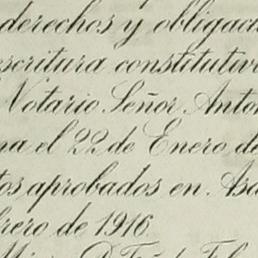 derechos y obligaci
escritura constitutiva
Notario Señor Anton
na el 22 de Enero de
tos aprobados en Asa
brero de 1916.